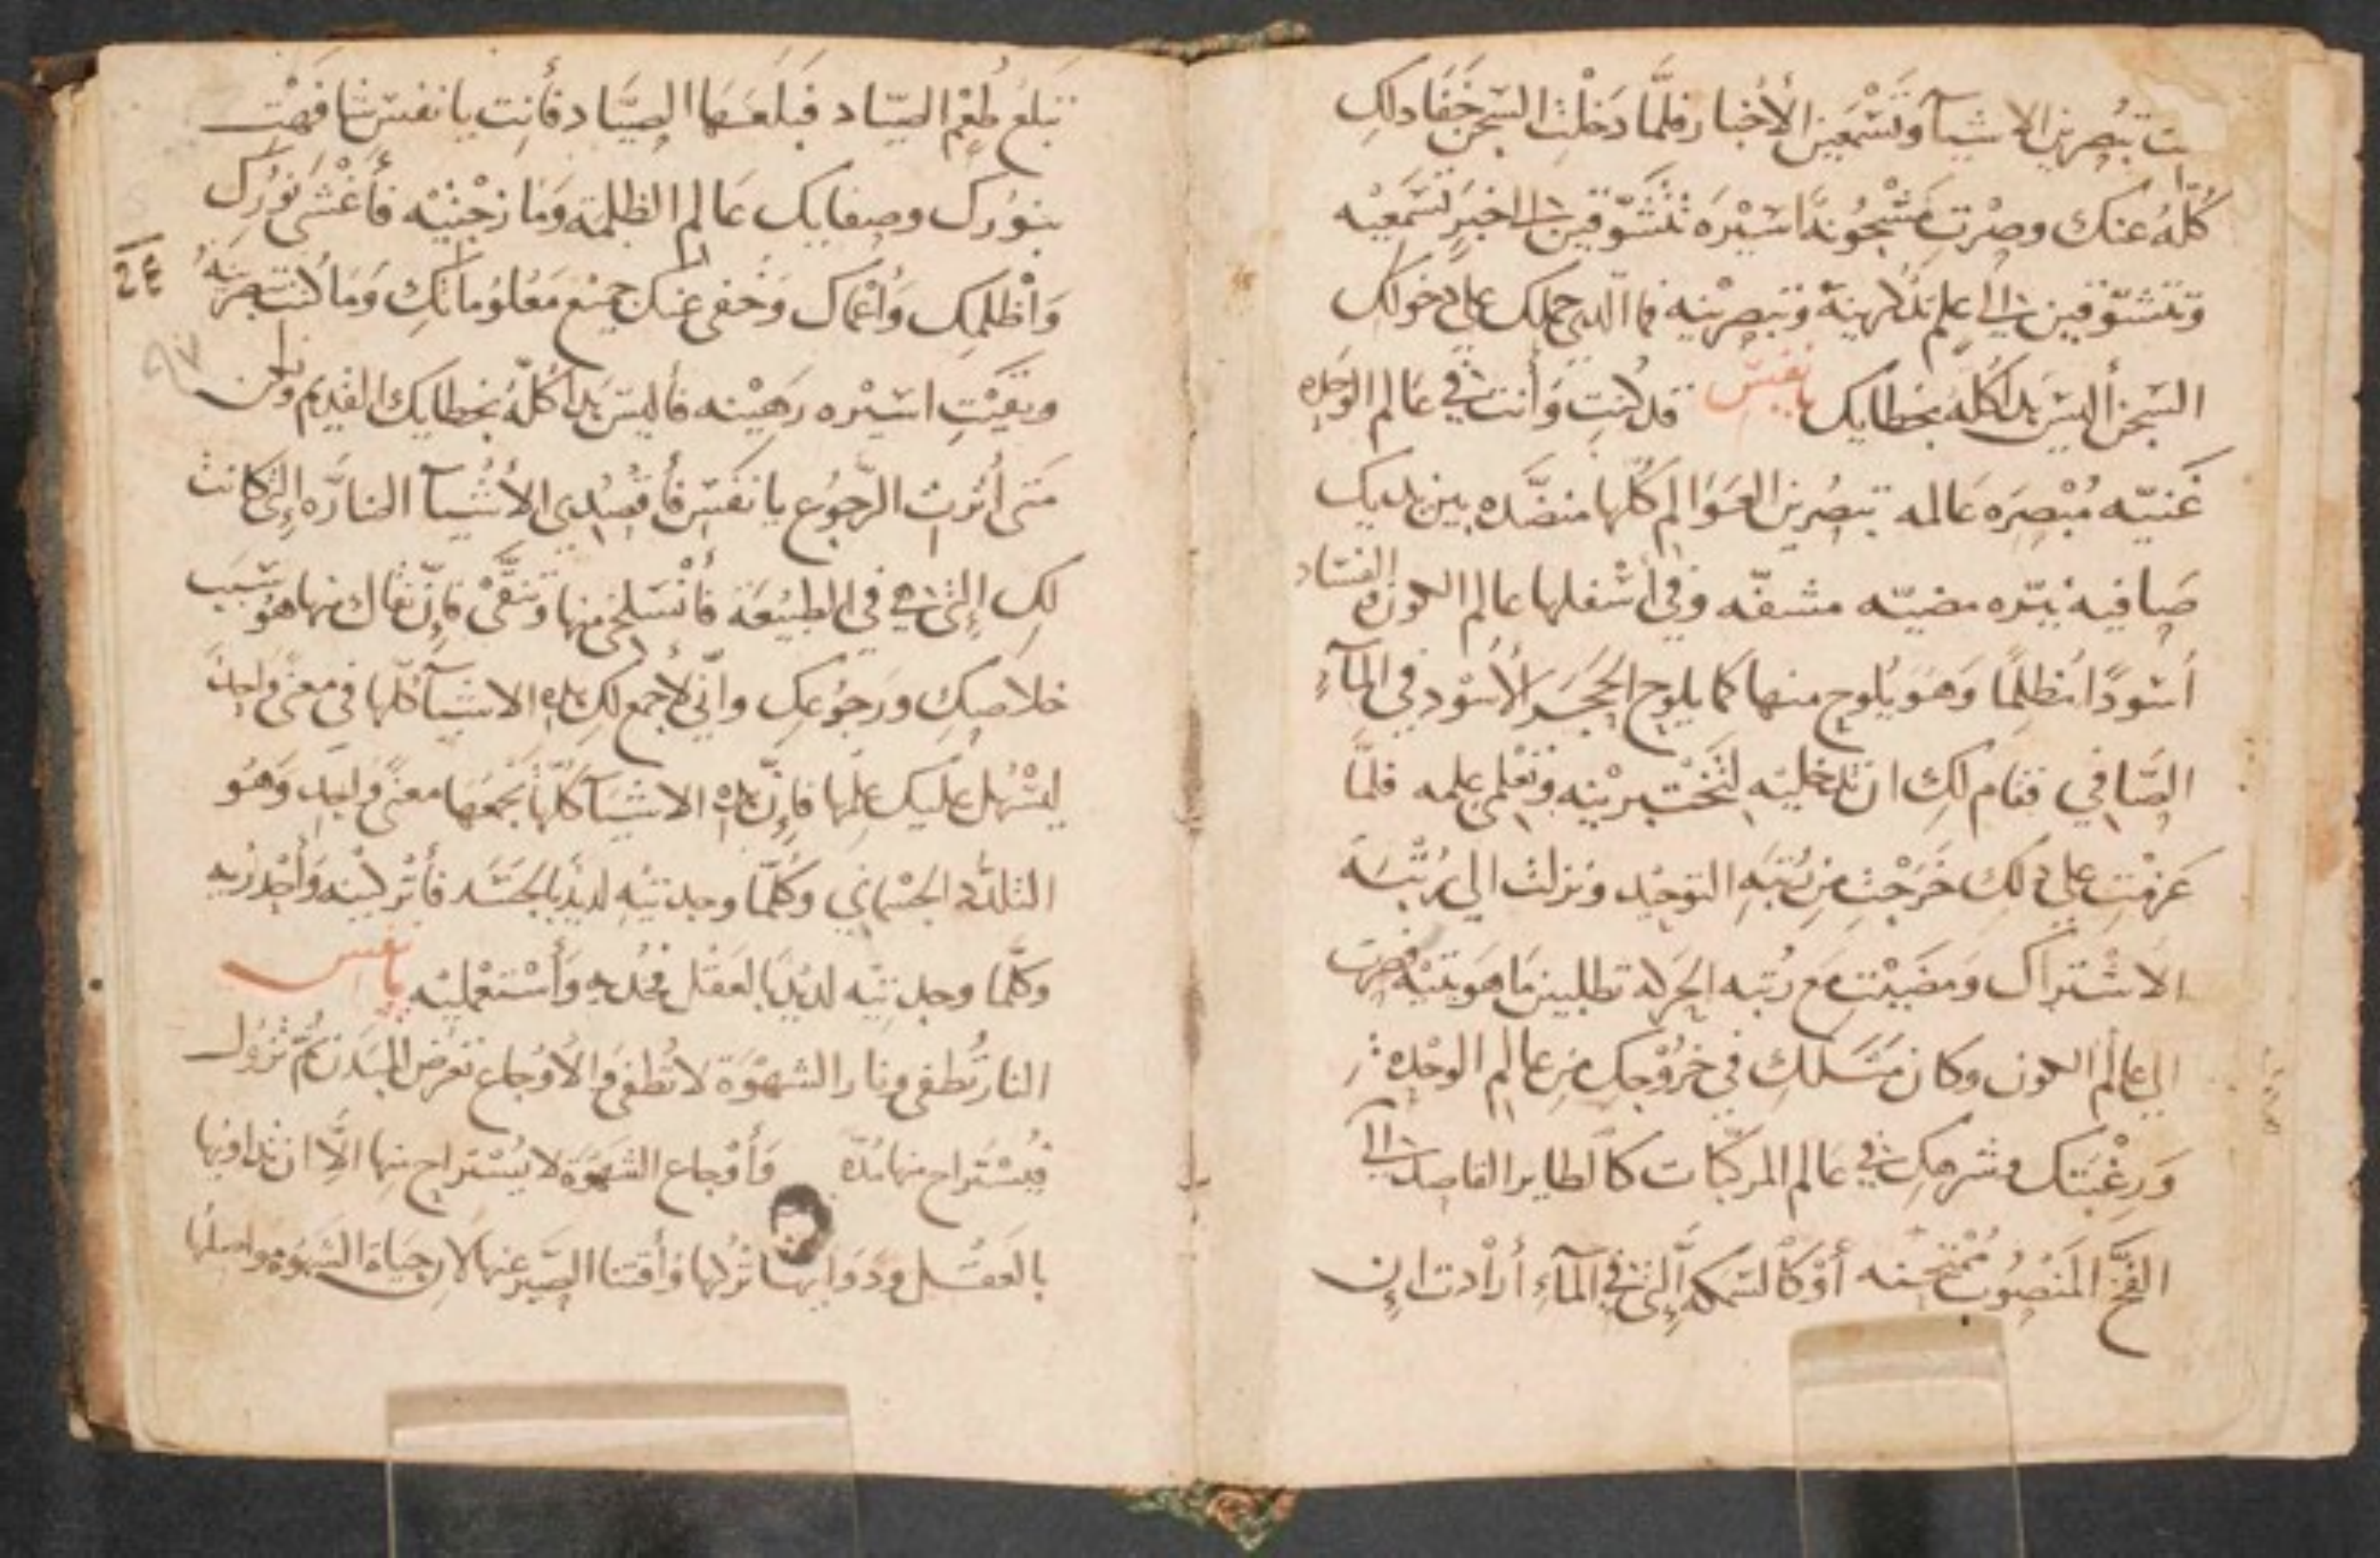 ـت تبصرين الاشيآ وتَسْمَعين الأخبار فلمَّا دَخلْتِ السّجن خَفَا دلك
كُلّهُ عنك وصِرْتِ مَسْجُونه اسَيْرَه تتشَوّقين الى خبرٍ تَسْمَعيْه
وتتشوّقين الى علمٍ وتبصرينه فما الدي حملك على دخولك
السّجن أليسَ هدا كُلّهُ بخطايك يا نفس قد كنتِ وَأنت في عَالم الوَحده
غَنيّه مُبْصِرَه عَالمه تبصُرين العَوَالم كُلّها منضّده بين يديك
صَافيه نيّره مضيّه مشفّه وفي أسْفلها عالم الكون والفسَاد
أسْودًا مُظلِمًا وَهوَ يُلوح منها كما يلوح الحجَر الأسْود في المآءِ
الصَّافي فقام لكِ ان تدخليْه لتختبريْنه وتعْلمي علمه فلمَّا
عَزمْتِ على دلك خَرَجْتِ من رُتبَةِ التوحيْد ونزلت الى رُتْبَة
الاشْتراك ومَضَيْتِ مع رُتبه الحركه تطلبين مَا هَويتيْه فصِرت
الى عالم الكون وكان مَسْلكِ في خرُوجكِ من عالم الوحْده
وَرغْبَتك وشرهكِ في عَالم المركّبَات كالطاير القاصد الى
الفخّ المَنصُوب أوْ كالسّمكه الّتي في المآءِ أرادت ان
تبَلع طُعْم الصيّاد فبَلعَها الصيَّاد فأنت يا نفسْ شافهْتِ
بنوُرك وصفايك عَالم الظلمة وَمَازجْتيْه فأغْشى نُورك
وَأظلمكِ وَأعْماكِ وَخفى عنكِ جميْع مَعْلوُماتكِ وَمَا كنتِ تبصريْنهُ
24
وبقيْتِ اسَيْره رَهيْنه فأليسَ هدا كُلّهُ بخطايك القديم ولكن
مَتى أثرتِ الرجوُع يا نفسْ فأقصُدي الأشيآ التي كانت
لكِ التي هي في الطبيْعة فأنْسَلخي منها وتنقَّيْ فإنّ نقاك منها هوَ سَبَب
خلاصكِ ورَجوُعكِ وانّي لأجمع لكِ هده الاشيآ كُلّها في معنىً واحدٌ
ليَسْهل عليكِ علمها فإنّ هده الاشيآ كلّها يَجْمعهَا معنىً واحدٍ وَهوَ
التلدّد الجسْماني وكُلّما وجدتيْهِ لديْد بالجَسَد فأتركيْه وَأحْدريه
وكلّما وجدتيْه لديْد بالعَقْل فخُديه وَأسْتعْمليْه يا نفس
النار تُطفى ونار الشهوْة لا تُطفى والأوْجاع تعْرض للبَدن ثُمّ تزوُل
فيُسْتراح منها مُدّه وَأوْجاع الشهوْة لا يُسْتراح منها الّا ان تداويْها
بالعَقل ودَوَايها ترْكها وأقتنا الصّبر عنها لان حيَاة الشهوَه مواصلتها